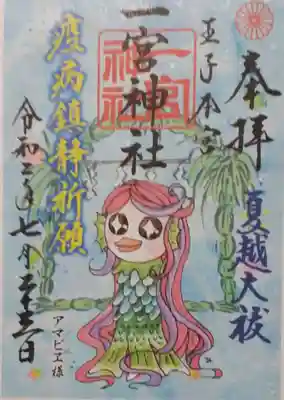 奉拝
夏越大祓
王子本宮
一宮神社
一宮神社
疫病鎮静祈願
令和二年七月
アマビヱ様